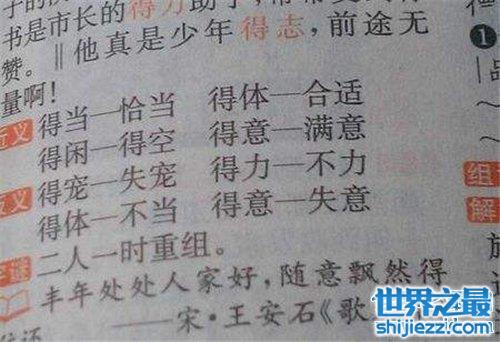 书是市长的得力助手，
赞。‖他真是少年得志，前途无
量啊！
近义 得当—恰当 得体—合适
得闲—得空 得意—满意
反义 得宠—失宠 得力—不力
得体—不当 得意—失意
字谜 二人一时重组。
丰年处处人家好，随意飘然得
——宋·王安石《歌
❶
组
解
世界之最
shijiezz.com